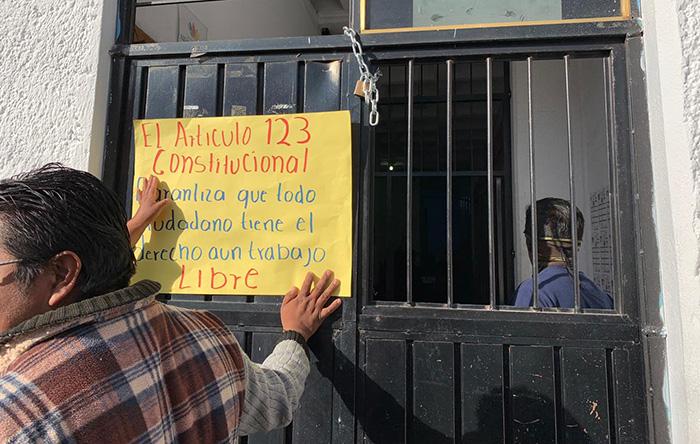 El Articulo 123
Constitucional
Garantiza que todo
ciudadano tiene el
derecho aun trabajo
Libre